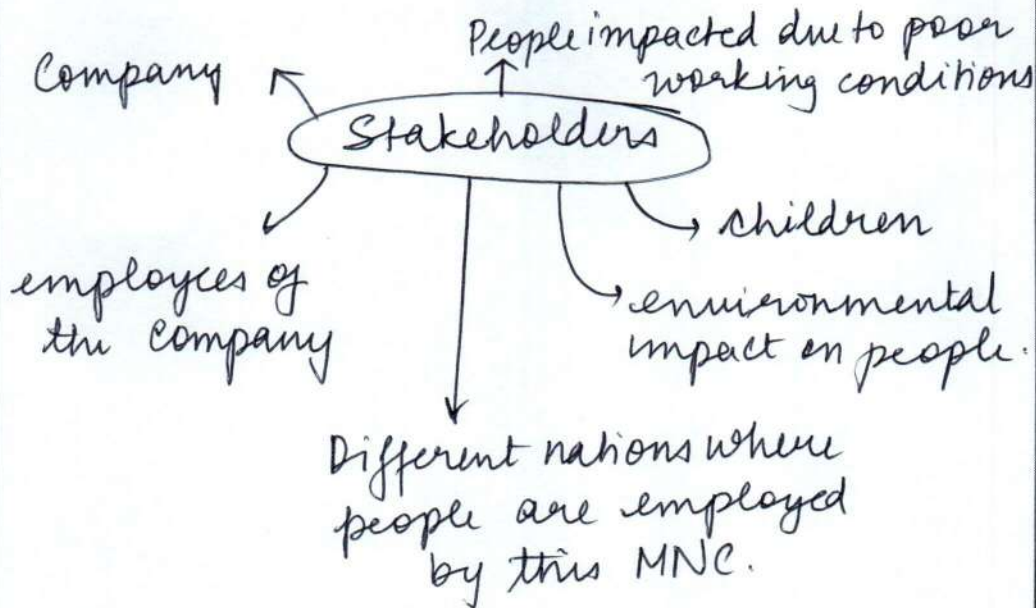 People impacted due to poor
working conditions
Company
Stakeholders
children
employees of
the company
environmental
impact on people.
Different nations where
people are employed
by this MNC.